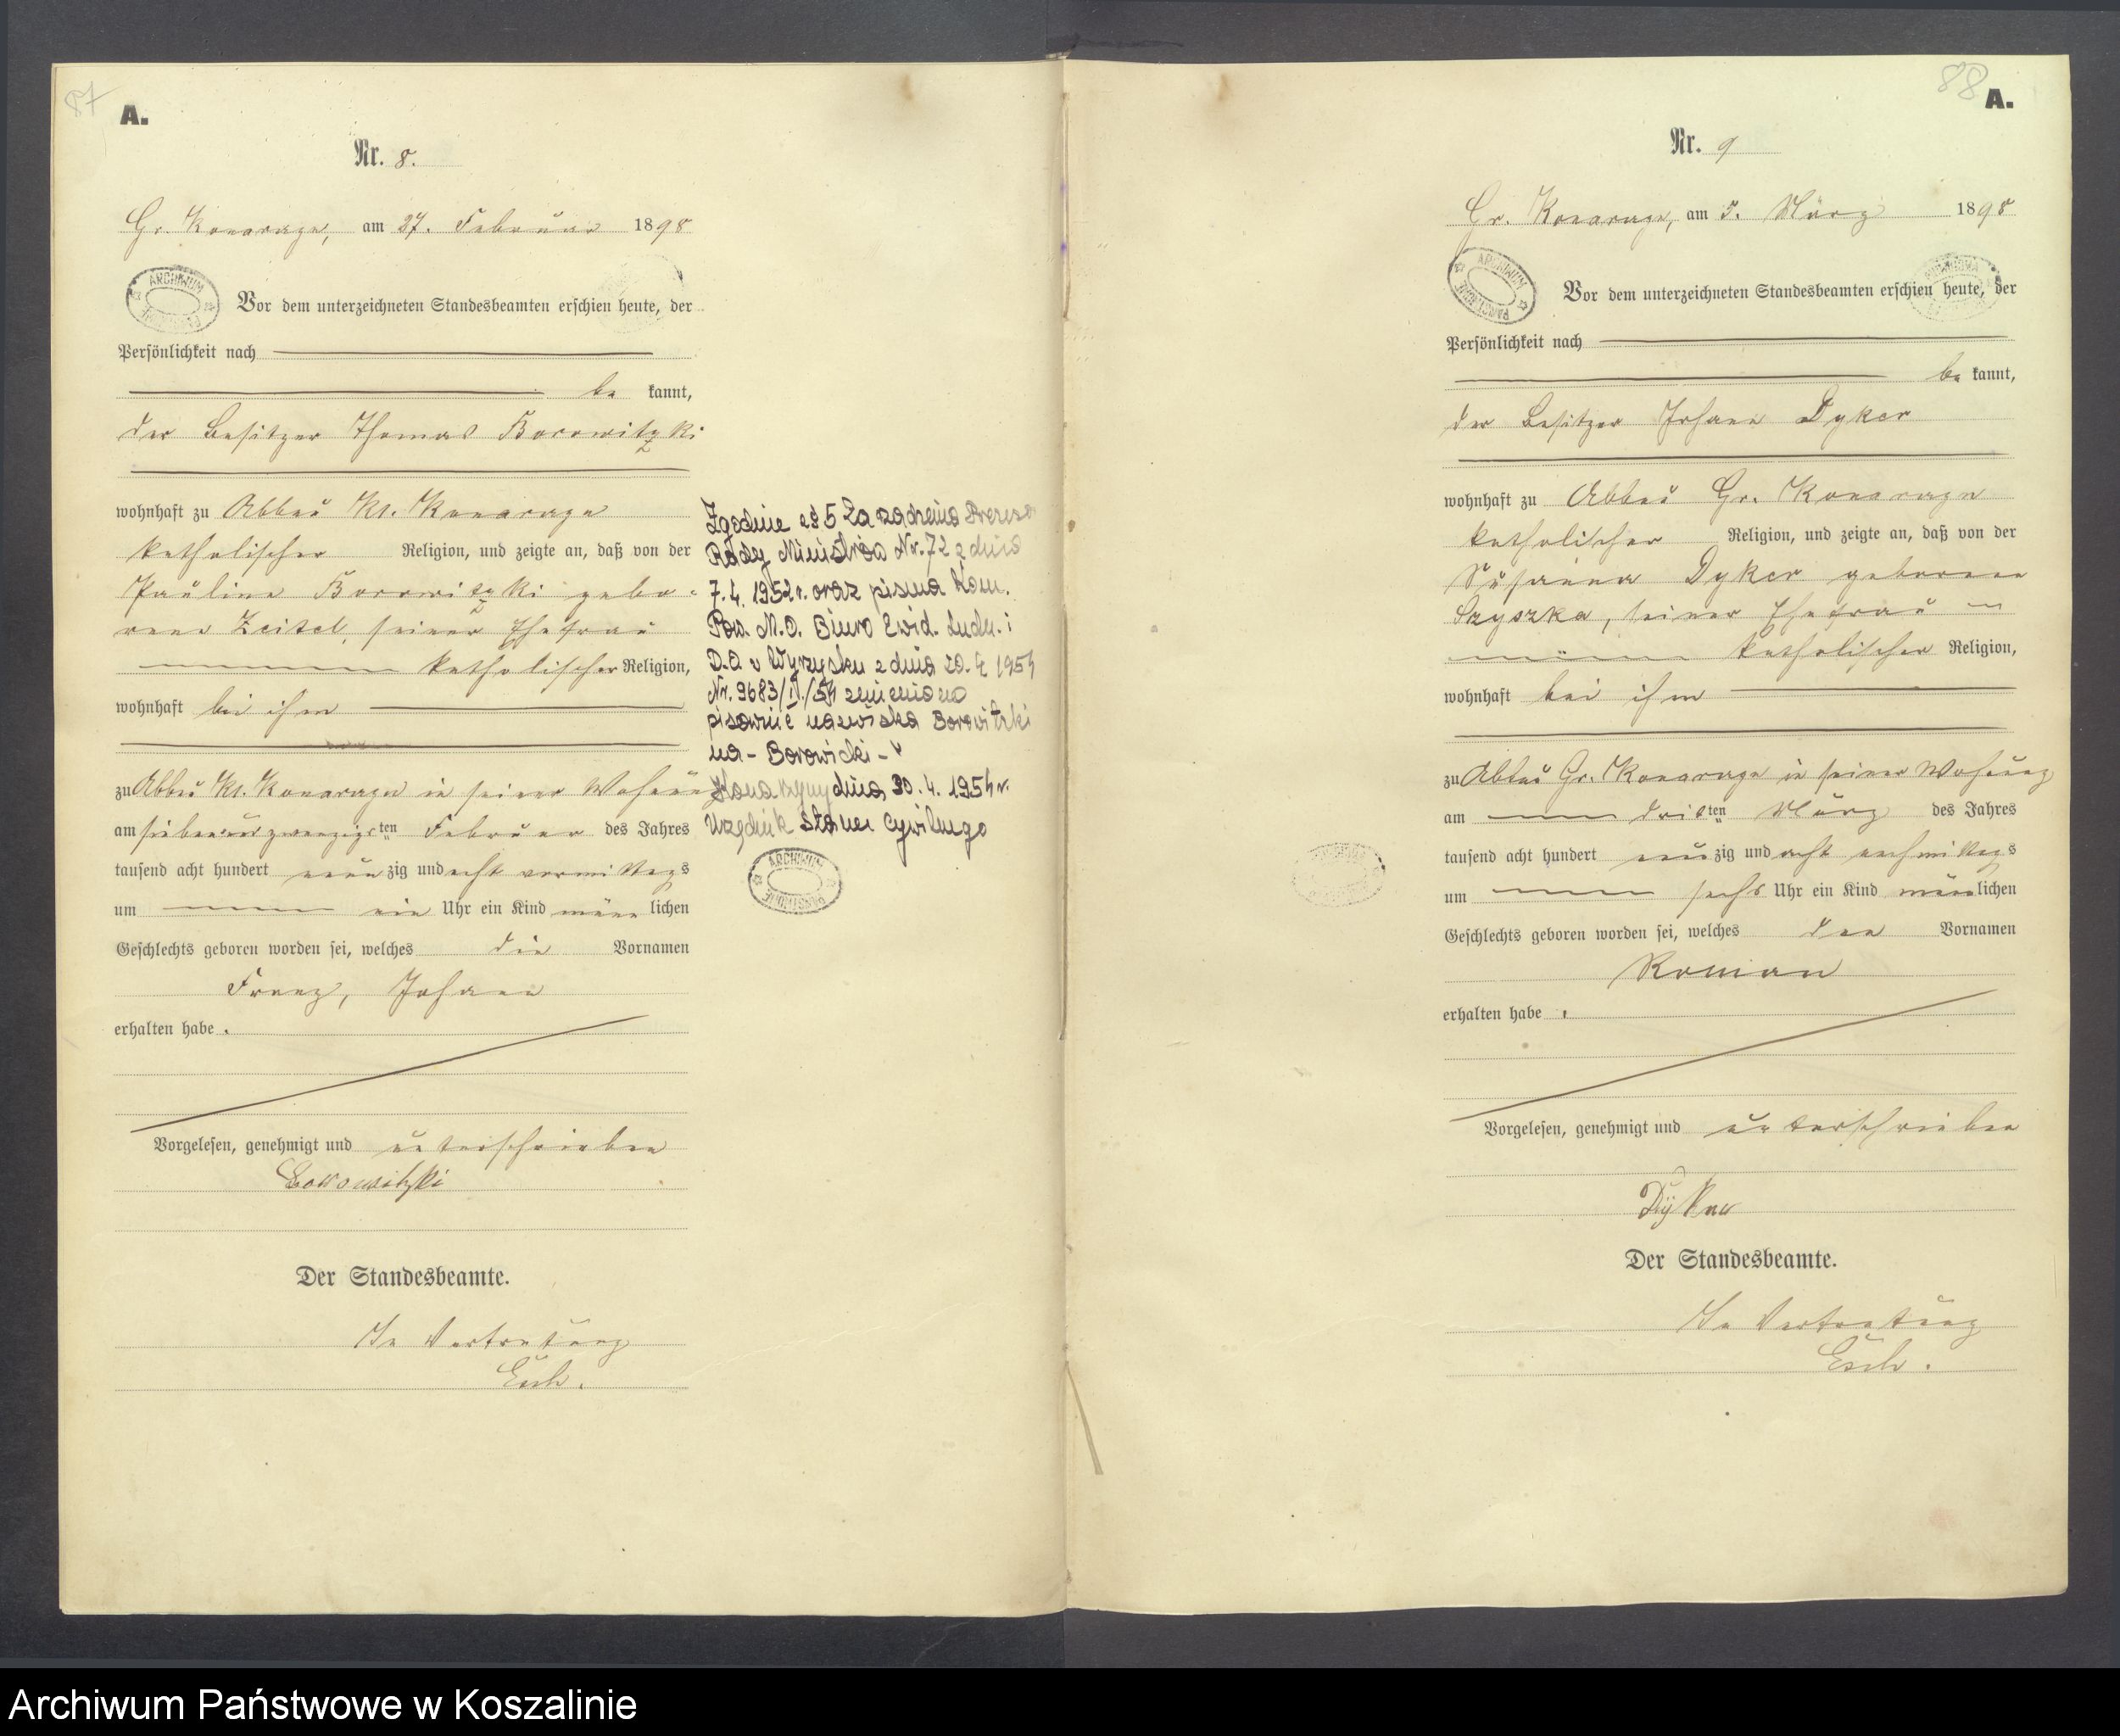 87
A.
Nr. 8.
Gr. Konarczyn, am 27. Februar 1898
ARCHIWUM
Vor dem unterzeichneten Standesbeamten erschien heute, der
Persönlichkeit nach
be kannt,
der Besitzer Thomas Borowitzki
wohnhaft zu Abbau Kl. Konarczyn
katholischer Religion, und zeigte an, daß von der
Pauline Borowitzki gebo-
rene Zeitel, seiner Ehefrau
katholischer Religion,
wohnhaft bei ihm
zu Abbau Kl. Konarczyn in seiner Wohnung
am siebenundzwanzigsten Februar des Jahres
tausend acht hundert neunzig und acht vormittags
um ein Uhr ein Kind männlichen
Geschlechts geboren worden sei, welches die Vornamen
Franz, Johann
erhalten habe.
Vorgelesen, genehmigt und unterschrieben
Borowitzki
Der Standesbeamte.
In Vertretung
Esch.
Zgodnie z § 5 Prezesa
Rady Ministrów Nr. 72 z dnia
7.4.1952r. oraz pisma Kom.
Pow. M.O. Biuro Ewid. Ludn. i
D.O w Wyrzysku z dnia 20.4 1954
Nr. 9683/II/54 zmieniono
pisownię nazwiska Borowitzki
na - Borowicki -
Konarzyny dnia 30.4.1954r.
Urzędnik Stanu Cywilnego
ARCHIWUM
88
A.
Nr. 9
Gr. Konarczyn, am 5. März 1898
ARCHIWUM
Vor dem unterzeichneten Standesbeamten erschien heute, der
Persönlichkeit nach
be kannt,
der Besitzer Johann Dyker
wohnhaft zu Abbau Gr. Konarczyn
katholischer Religion, und zeigte an, daß von der
Susanna Dyker geborene
Szyszka, seiner Ehefrau
katholischer Religion,
wohnhaft bei ihm
zu Abbau Gr. Konarczyn in seiner Wohnung
am dritten März des Jahres
tausend acht hundert neunzig und acht nachmittags
um sechs Uhr ein Kind männlichen
Geschlechts geboren worden sei, welches den Vornamen
Roman
erhalten habe.
Vorgelesen, genehmigt und unterschrieben
Dyker
Der Standesbeamte.
In Vertretung
Esch.
Archiwum Państwowe w Koszalinie